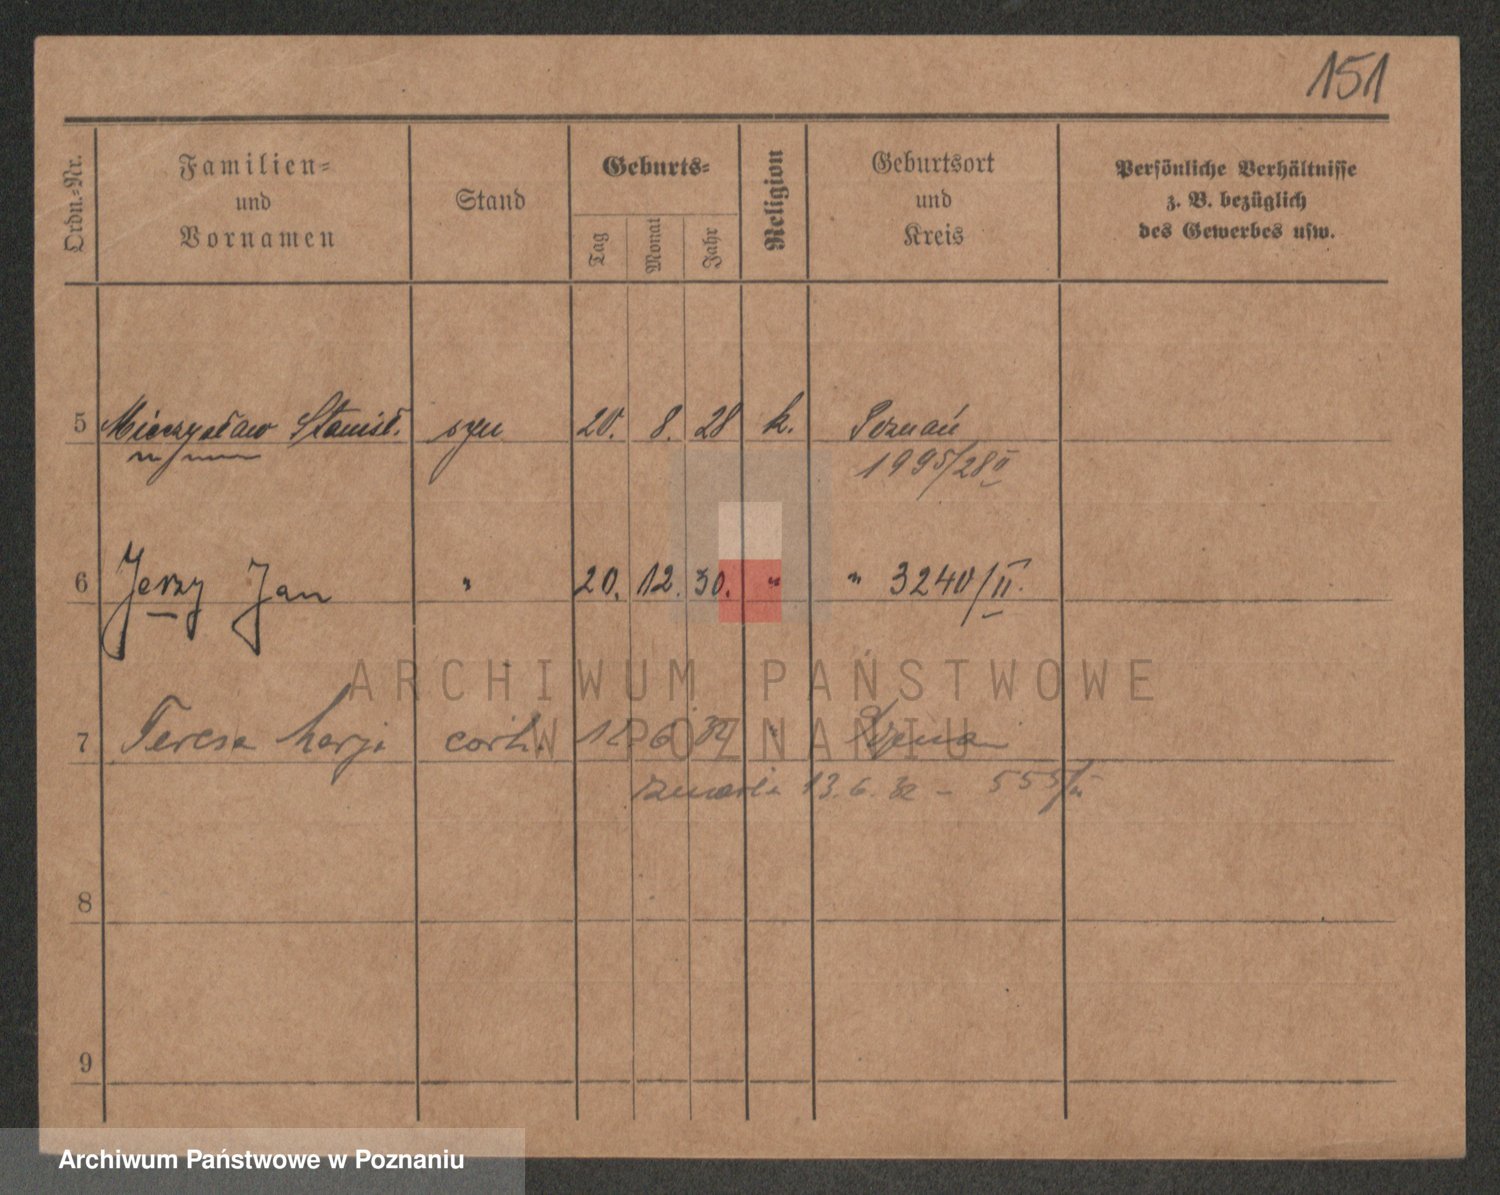 151
Ordn.=Nr.
Familien=
und
Vornamen
Stand
Geburts=
Tag
Monat
Jahr
Religion
Geburtsort
und
Kreis
Persönliche Verhältnisse
z. B. bezüglich
des Gewerbes usw.
5 Mieczysław Stanisł. syn 20. 8. 28 k. Poznań
1995/28 II
6 Jerzy Jan " 20. 12. 30. " " 3240/II.
ARCHIWUM PAŃSTWOWE
W POZNANIU
7 Teresa Marja córk. 12 6 32 "
zmarła 13. 6. 32 – 555/III
8
9
Archiwum Państwowe w Poznaniu